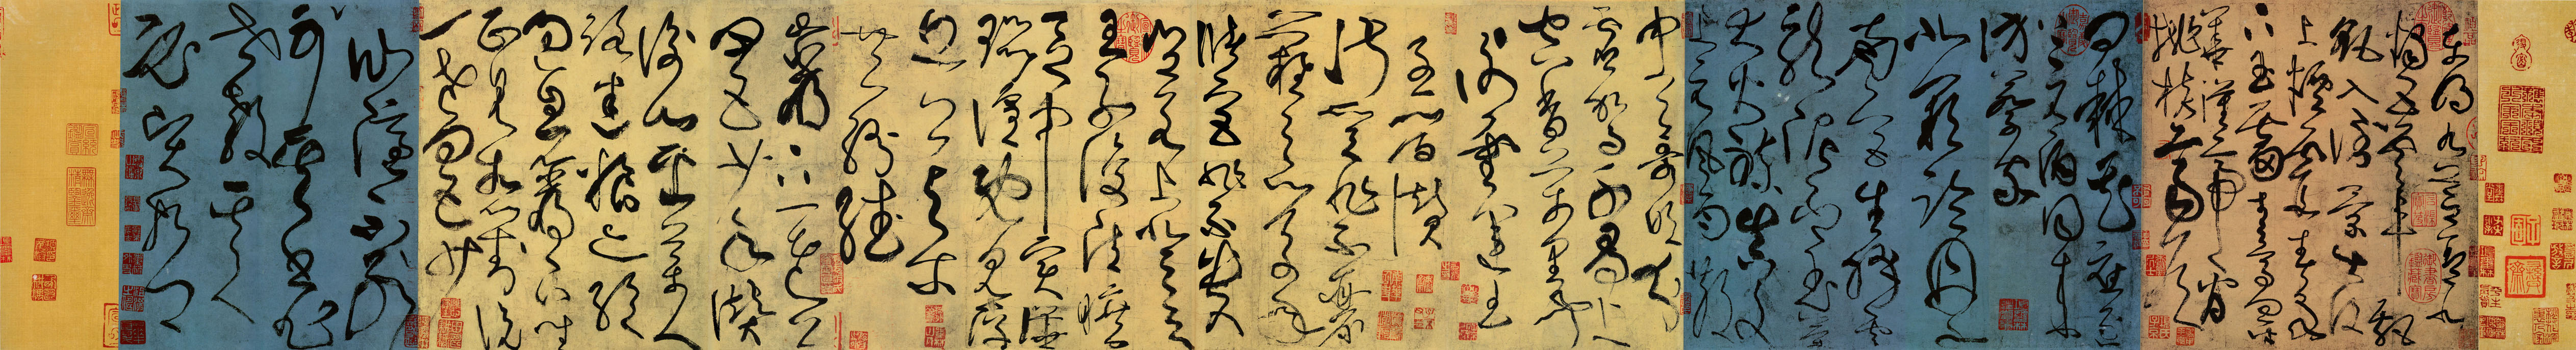 東明九芝蓋北
燭五雲車飄
飖入倒景出沒
上煙霞春泉
下玉霤青鳥向金
華漢帝看
桃核齊侯
問棘花應逐
上元酒同來
訪蔡家
北闕臨丹水
南宮生絳雲
龍泥印玉簡
大火煉真文
上元風雨散
中天歌吹分
虛駕千尋上
空香萬里聞
謝靈運王
子晉讚
淑質非不麗
難以之百年
儲宮非不貴
豈若上登天
王子復清曠
區中實譁
囂喧既見浮
丘公與爾
共紛繙
巖下一老公
四五少年讚
衡山採藥人
路迷糧亦絕
過息巖下坐
正見相對說
一老四五少
仙隱不別
可其書非世
教其人
必賢哲